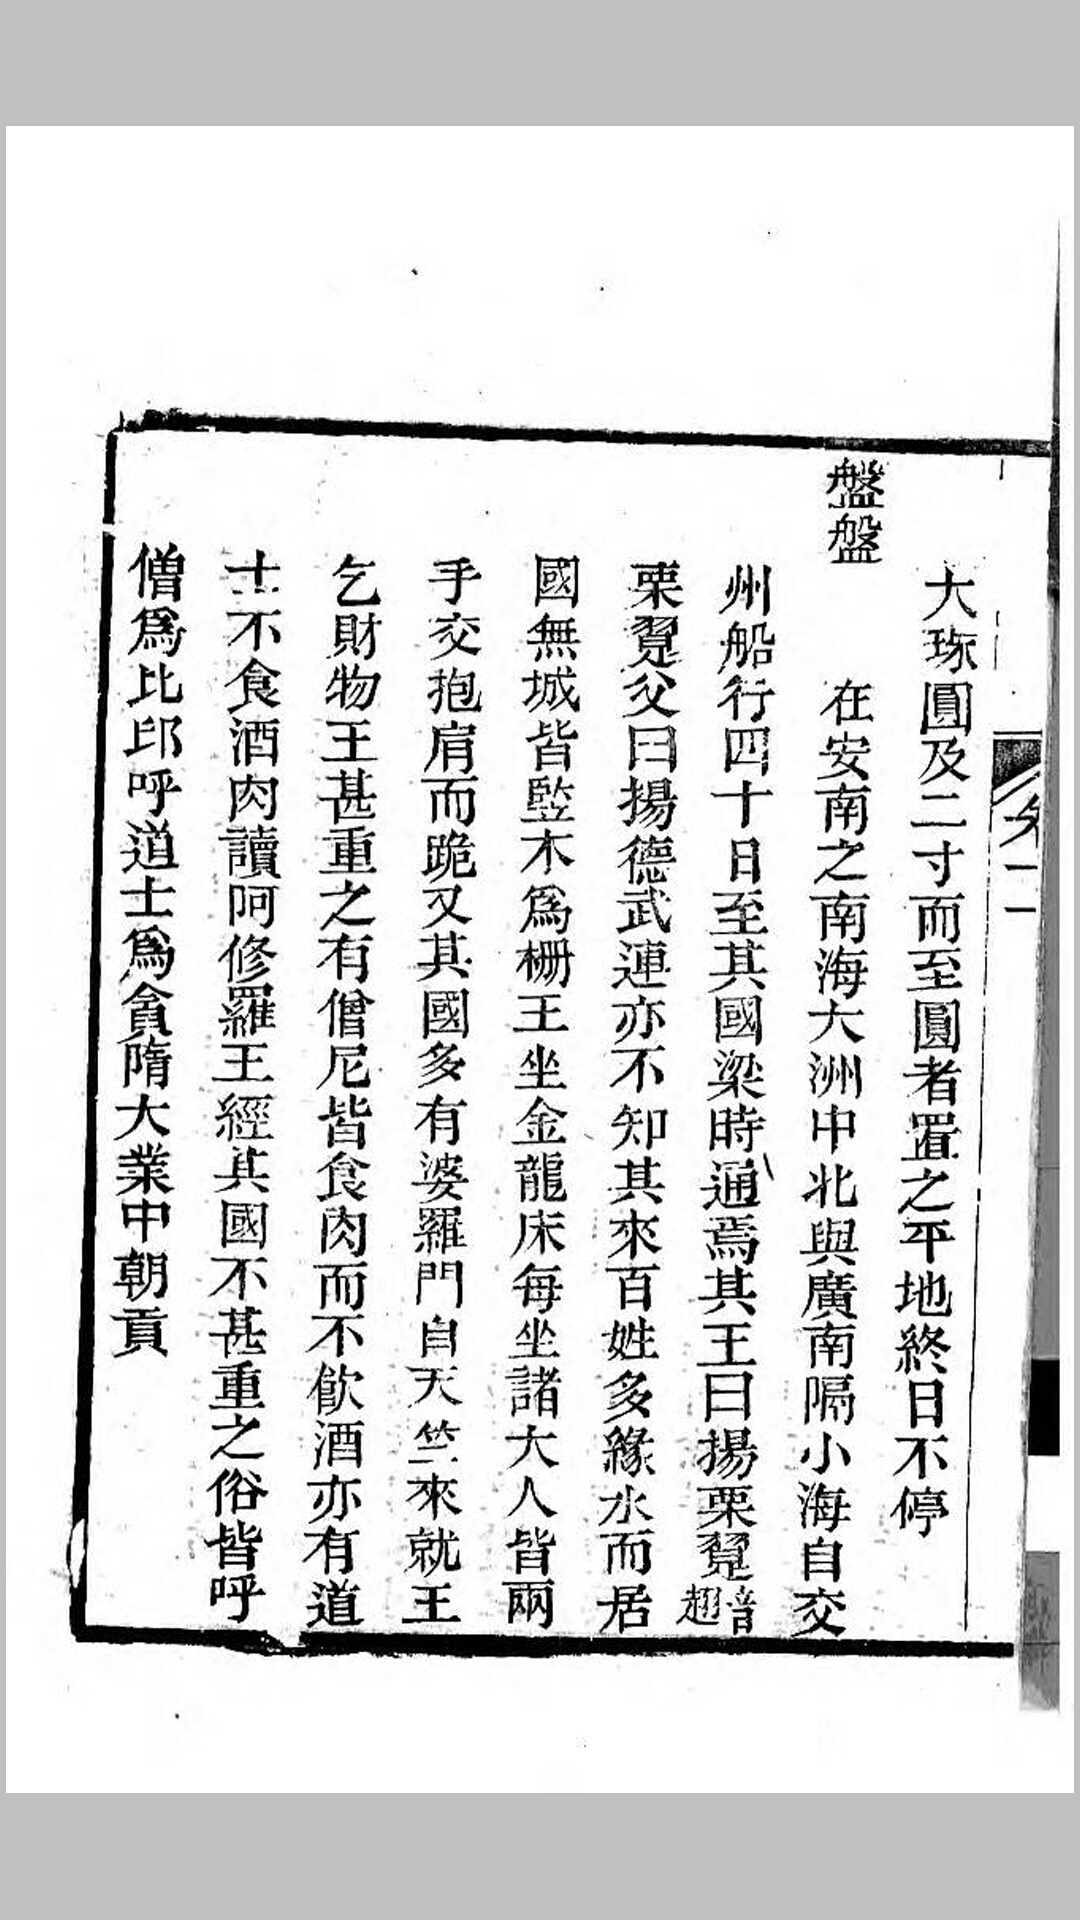 大琢圓及二寸而至圓者置之平地終日不停
盤盤
在安南之南海大洲中北與廣南隔小海自交
州船行四十日至其國梁時通焉其王曰揚栗翨音趐
栗翨父曰揚德武連亦不知其來百姓多緣水而居
國無城皆竪木爲柵王坐金龍床每坐諸大人皆兩
手交抱肩而跪又其國多有婆羅門自天竺來就王
乞財物王甚重之有僧尼皆食肉而不飮酒亦有道
士不食酒肉讀呵修羅王經其國不甚重之俗皆呼
僧爲比卭呼道士爲貪隋大業中朝貢